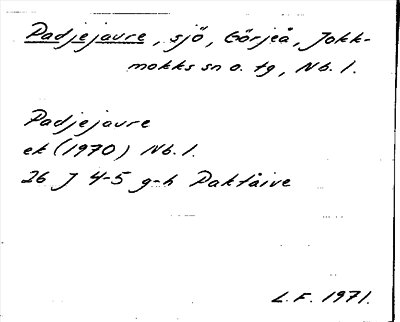 Padjejaure, sjö, Görjeå, Jokk-
mokks sn o. tg, Nb. l.
Padjejaure
ek (1970) Nb. l.
26 J 4-5 g-h Paktåive
L.F. 1971.